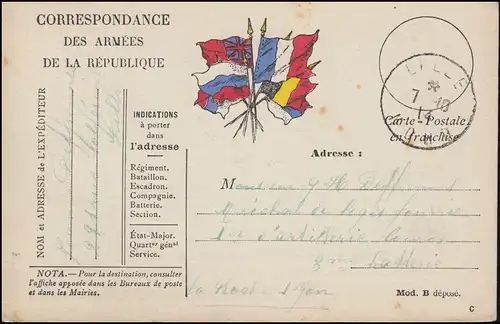 CORRESPONDANCE
DES ARMÉES
DE LA RÉPUBLIQUE
LILLE
*
7
10
14
NORD
Carte-Postale
en franchise
NOM et ADRESSE de L'EXPÉDITEUR
INDICATIONS
à porter
dans
l'adresse
Régiment.
Bataillon.
Escadron.
Compagnie.
Batterie.
Section.
État-Major.
Quartr génal
Service.
Adresse :
Monsieur G H
Maréchal de logis fourrier
d'artillerie
batterie
La Roche s/ Yon
NOTA. — Pour la destination, consulter
l'affiche apposée dans les Bureaux de poste
et dans les Mairies.
Mod. B déposé.
C